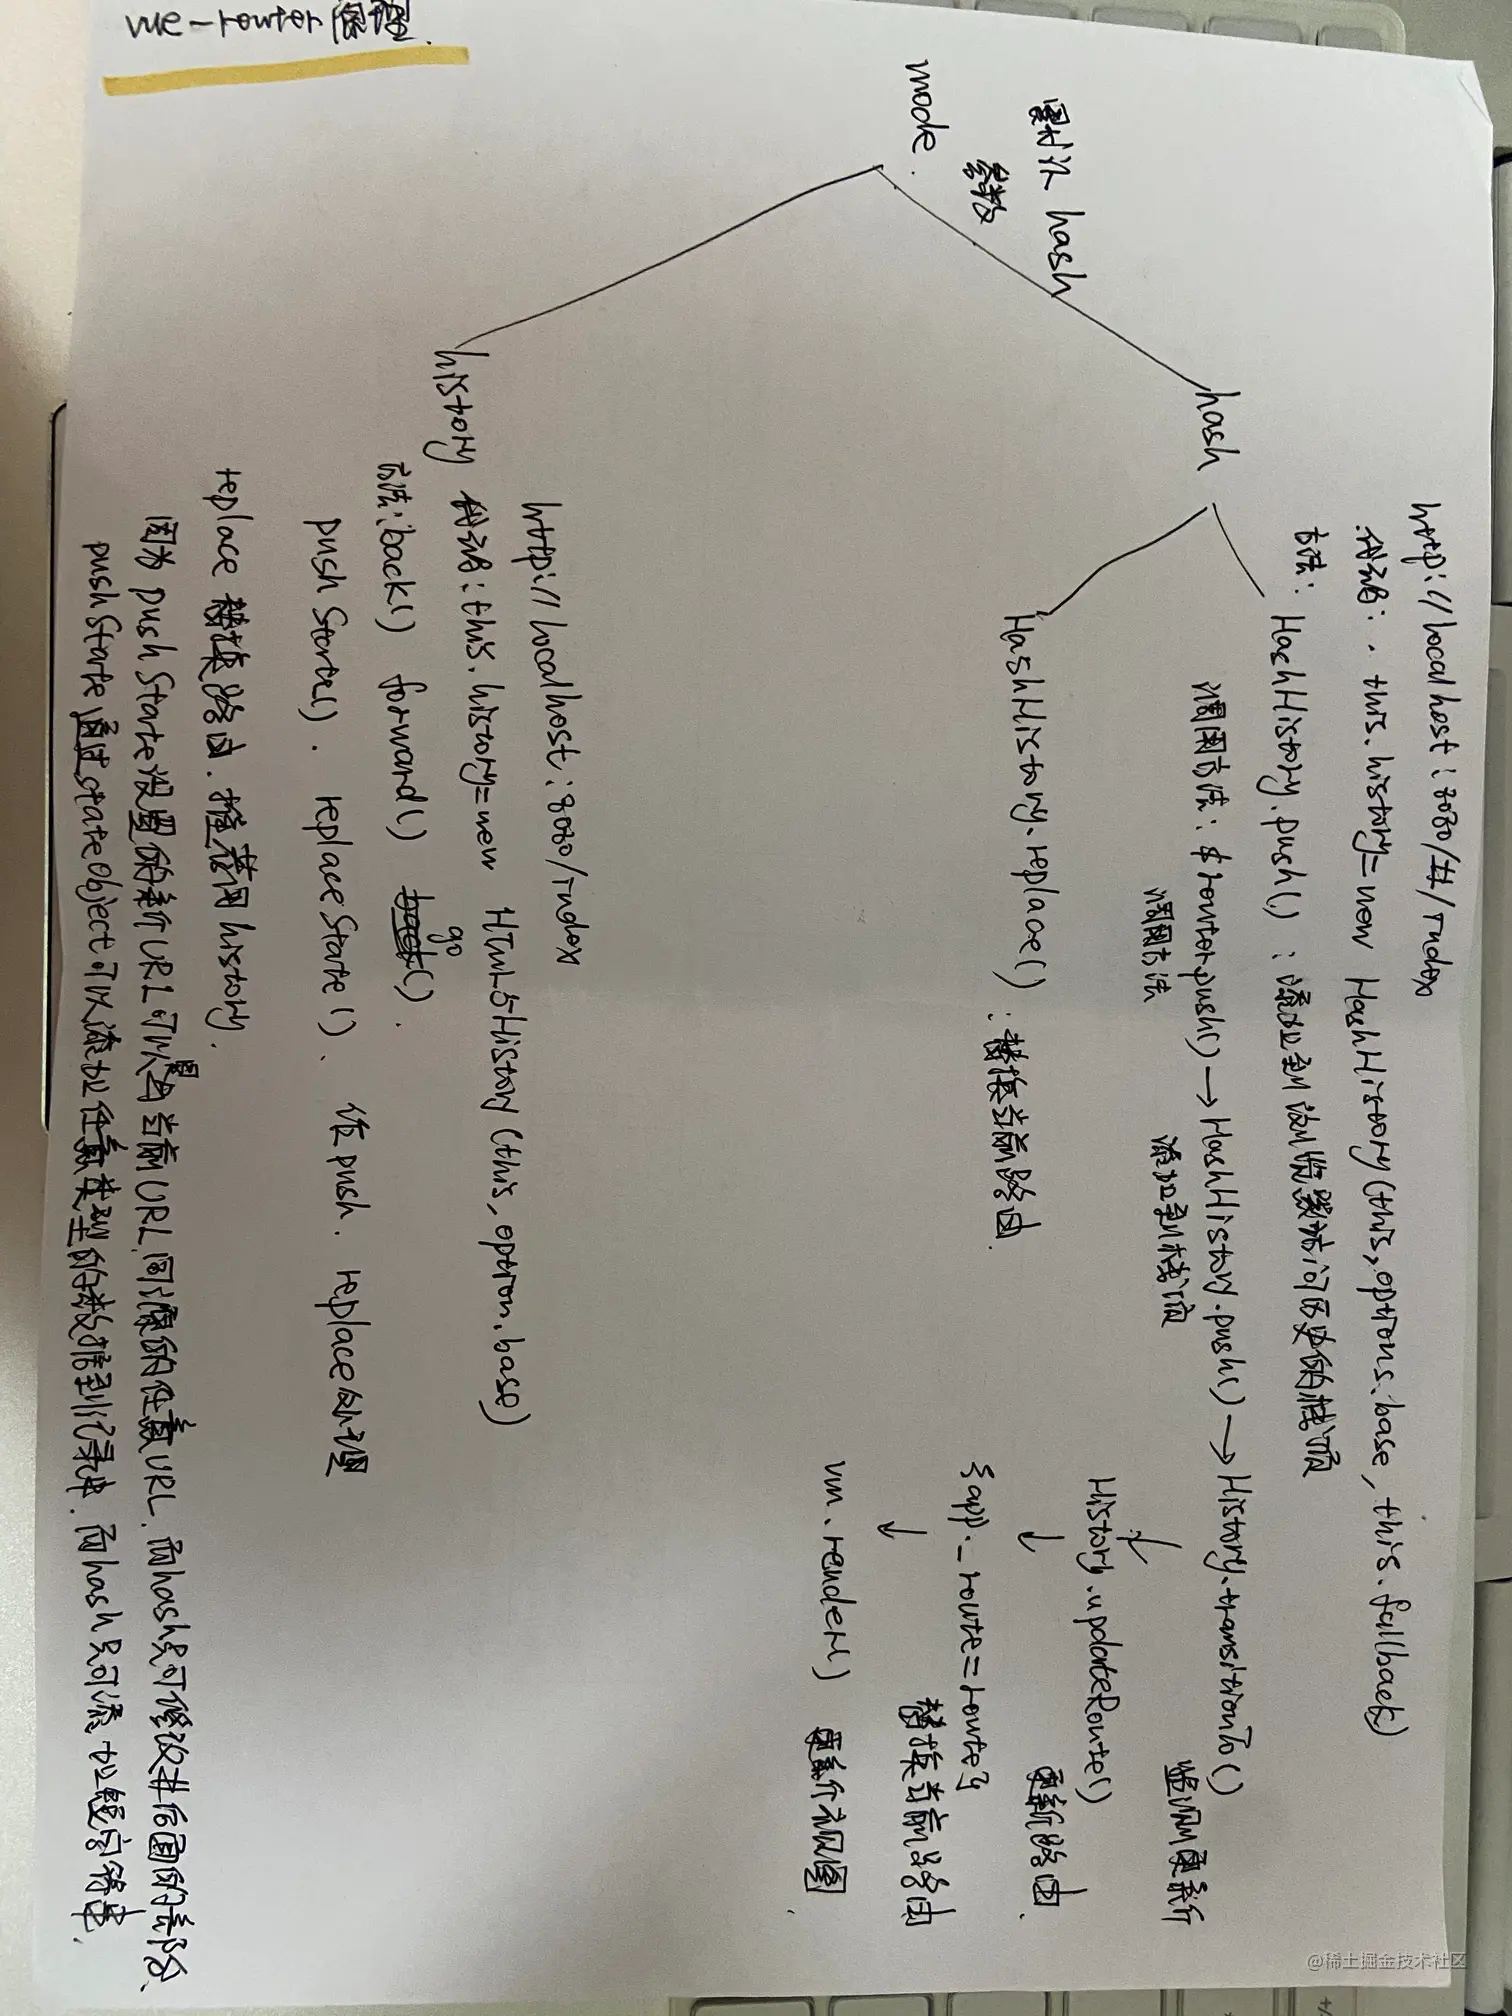 vue-router 原理.
mode.
参数
置默认 hash
hash
http://localhost:8080/#/index
代码: . this.history=new HashHistory(this, options.base, this.fallback)
方法: HashHistory.push() : 添加到浏览器访问历史的栈顶
调用方法: $router.push() → HashHistory.push() → History.transitionTo()
调用方法 添加到栈顶 监测更新
↓
History.updateRoute() 更新路由.
↓
{app._route=route} 替换当前路由
↓
vm.render() 更新视图.
HashHistory.replace() : 替换当前路由.
http://localhost:8080/index
history 代码: this.history=new HTML5History(this, option.base)
方法: back() forward() go ().
pushState(). replaceState(). 仿 push. replace处理
replace 替换路由. 推荐用history.
因为 pushState设置的新URL可以是与当前URL同源的任意URL. 而hash只可修改#后面的部分.
pushState通过stateObject可以添加任意类型的数据到记录中. 而hash只可添加短字符串.
@稀土掘金技术社区